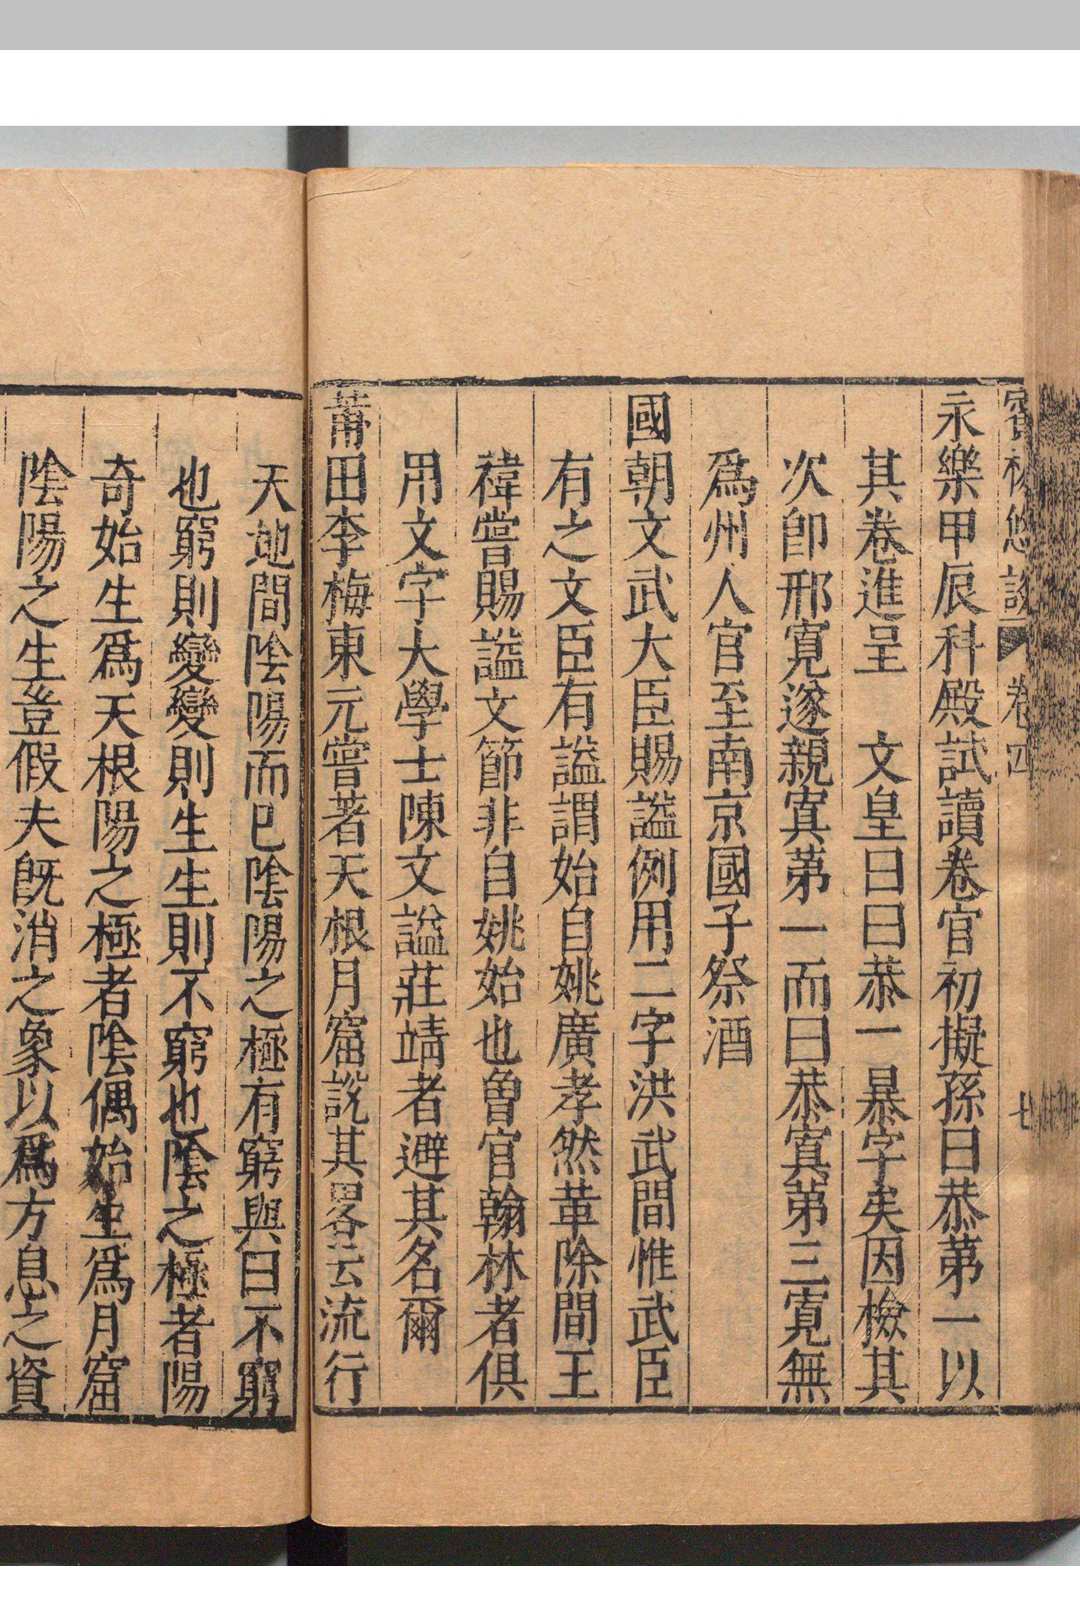 永樂甲辰科殿試讀卷官初擬孫曰恭第一以
其卷進呈　文皇曰曰恭一暴字矣因檢其
次卽邢寬遂親寘第一而曰恭寘第三寬無
爲州人官至南京國子祭酒
國朝文武大臣賜謚例用二字洪武間惟武臣
有之文臣有謚謂始自姚廣孝然革除間王
禕嘗賜謚文節非自姚始也曾官翰林者俱
用文字大學士陳文謚莊靖者避其名爾
莆田李梅東元嘗著天根月窟説其畧云流行
天地間陰陽而已陰陽之極有窮與曰不窮
也窮則變變則生生則不窮也陰之極者陽
奇始生爲天根陽之極者陰偶始生爲月窟
陰陽之生豈假夫旣消之象以爲方息之資
卷四
七